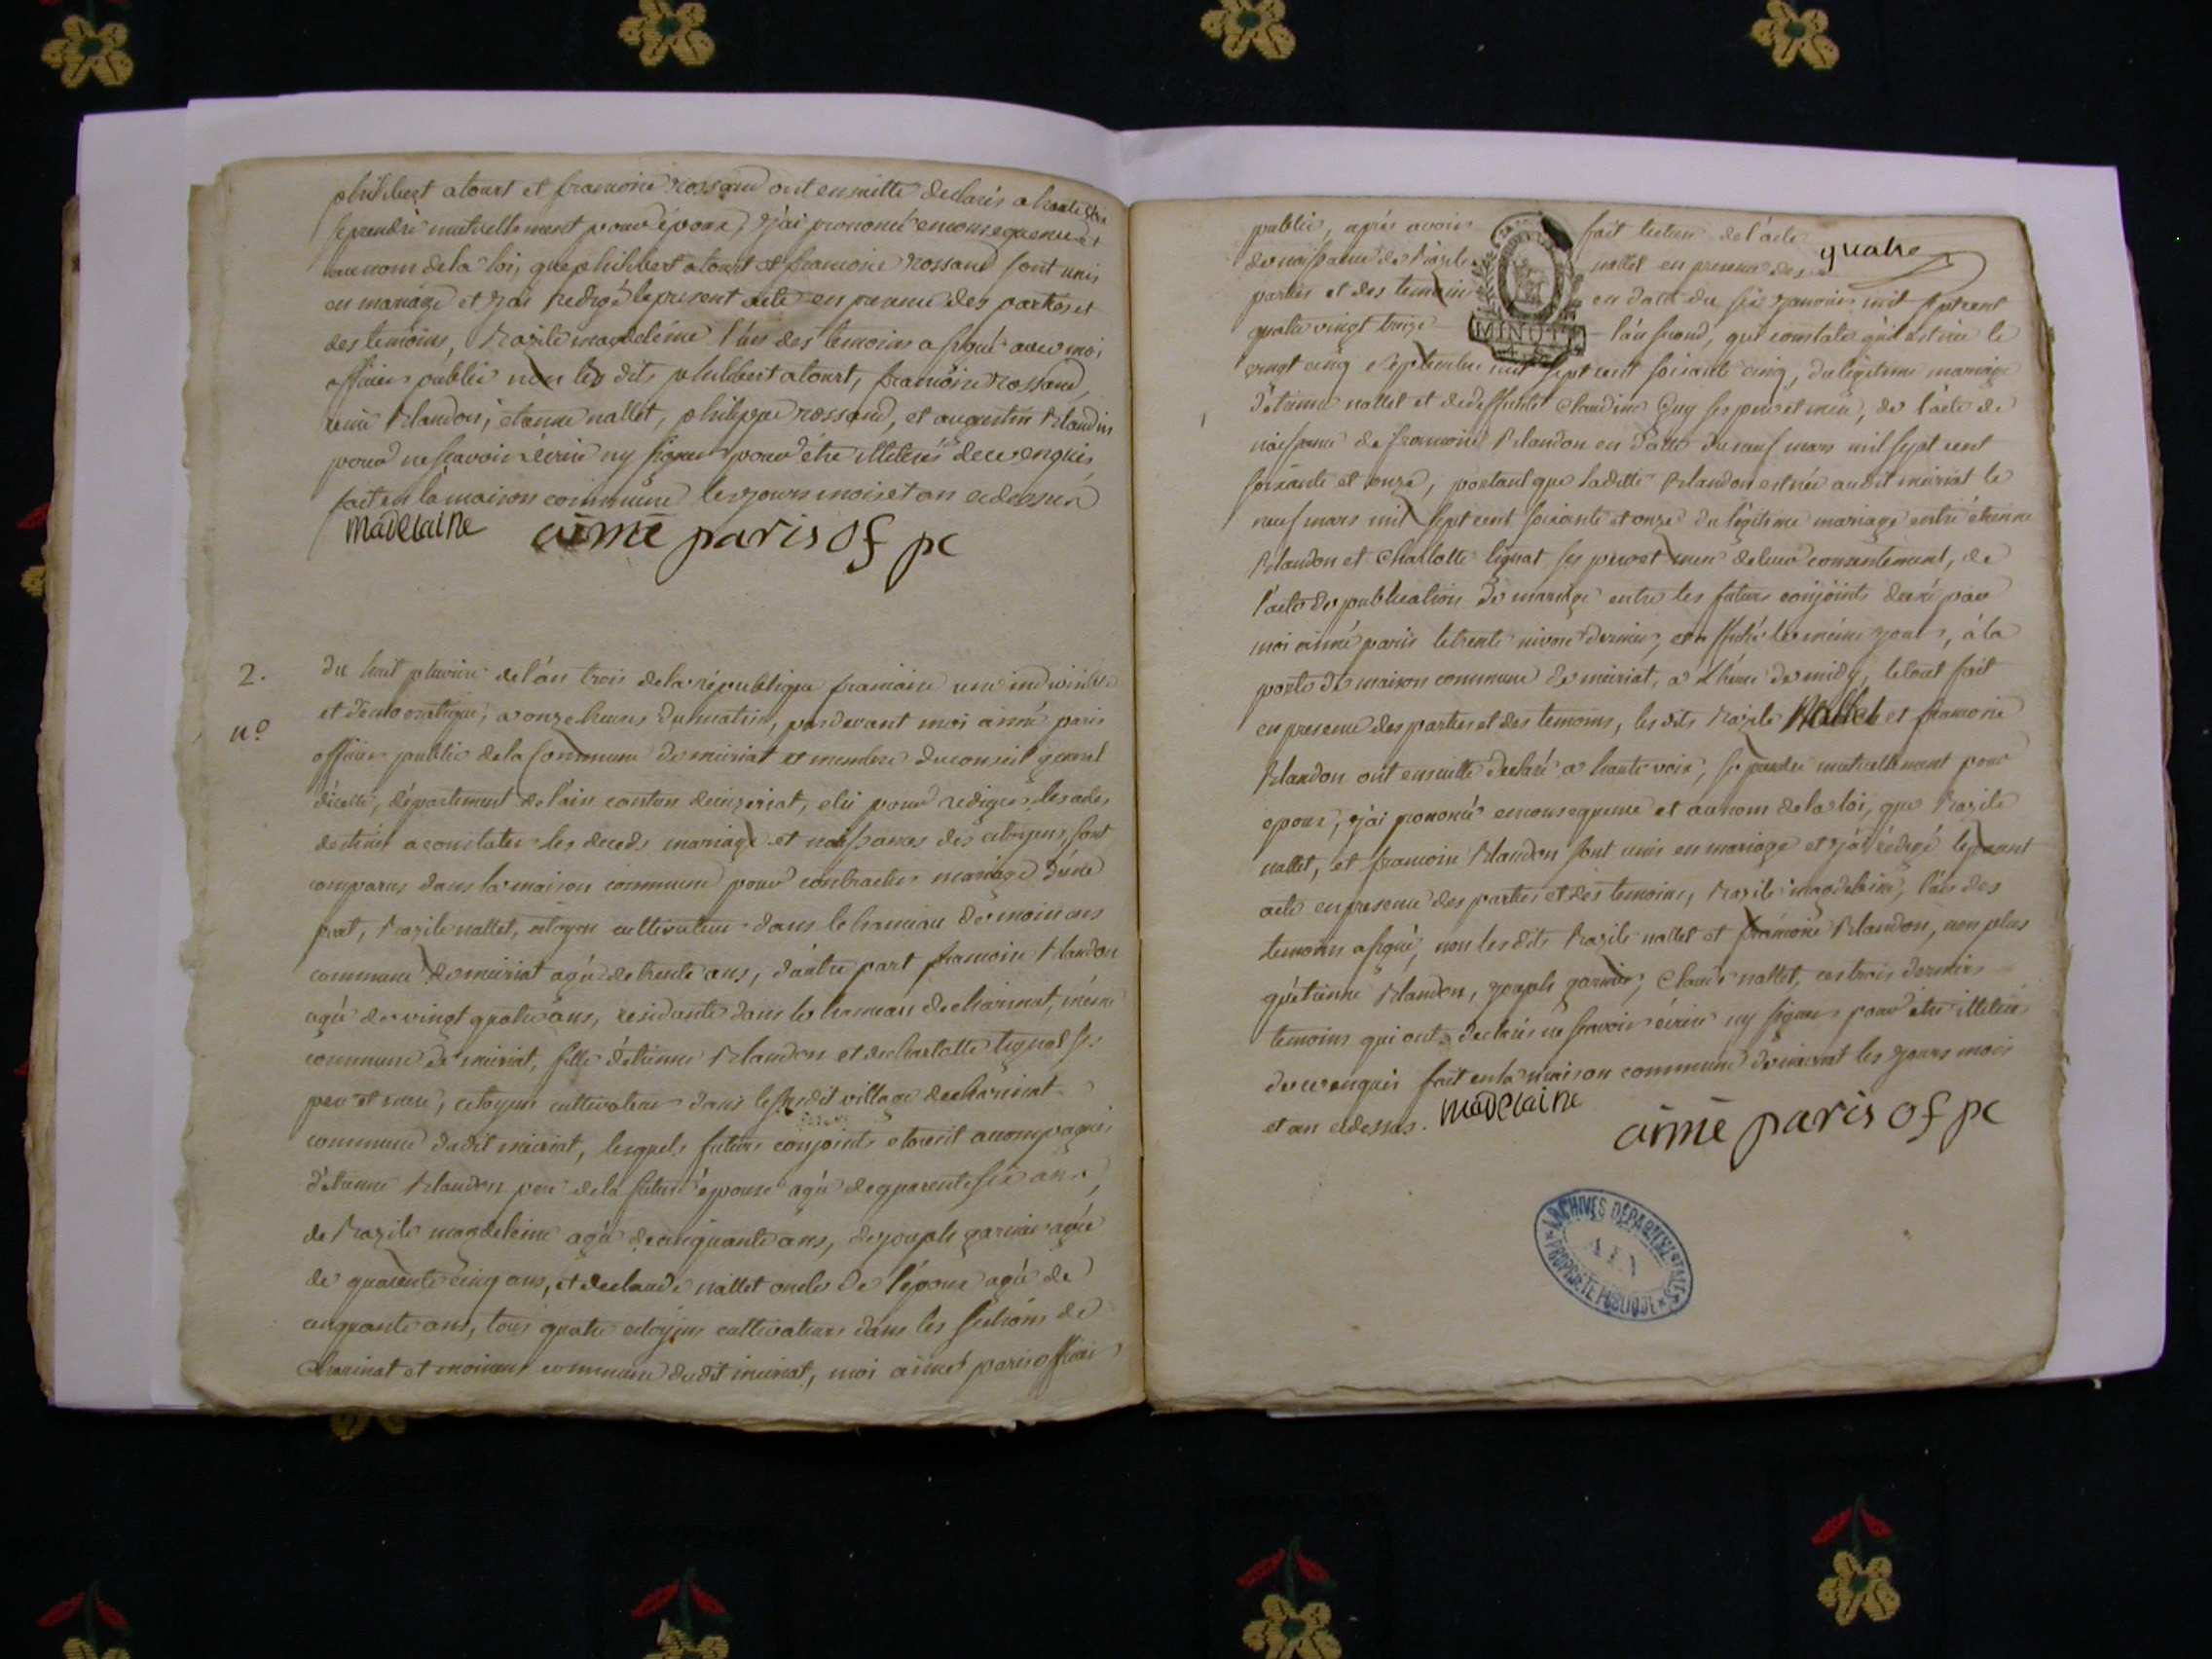 philibert atourt et francoise rossand ont ensuitte declarés a haute voix
se prendre mutuellement pour époux, j'ai prononcé en consequence et
au nom de la loi, que philibert atourt et francoise rossand sont unis
en mariage et j'ai redigé le present acte en presence des parties et
des temoins, Bazile magdeleine l'un des temoins a signé avec moi
officier public non les dits philibert atourt, francoise rossand,
Blandon, etienne nallet, philippe rossand, et augustin Blandin
pour ne sçavoir écrire ny signer pour être illiterés de ce enquis
fait en la maison commune les jours mois et an cidessus
madelaine aimé paris of pc
2.
nº
du huit pluviose de l'an trois de la république francaise une indivisible
et démocratique, a onze heures du matin, pardevant moi aimé paris
officier public de la commune de meiriat et membre du conseil general
d'icelle, département de l'ain canton de izeriat, elu pour rediger les actes
destinés a constater les deceds mariage et naissances des citoyens, sont
comparus dans la maison commune pour contracter mariage d'une
part, Bazile nallet, citoyen cultivateur dans le hameau de moinans
commune de meiriat agé de trente ans, d'autre part francoise Blandon
agée de vingt quatre ans, residante dans le hameau de charinat, même
commune de meiriat, fille d'etienne Blandon et de charlotte lignat ses
pere et mere, citoyens cultivateurs dans le susdit village de charinat
commune dudit meiriat, lesquels futurs conjoints etoient accompagnés
d'etienne Blandon pere de la future épouse agé de quarente six ans,
de Bazile magdeleine agé de cinquante ans, de joseph garnier agée
de quarente cinq ans, et de claude nallet oncle de l'époux agé de
cinquante ans, tous quatre citoyens cultivateurs dans les sections de
charinat et moinans commune dudit meiriat, moi aimé paris officier
quatre
public, après avoir fait lecture de l'acte
de naissance de Bazile nallet en presence des
parties et des temoins en datte du six janvier mil sept cent
MINUTE
quatre vingt treize l'an second, qui constate qu'il est née le
vingt cinq septembre mil sept cent soixante cinq, du legitime mariage
d'etienne nallet et de deffunte Claudine Guy ses pere et mere, de l'acte de
naissance de francoise Blandon en datte du neuf mars mil sept cent
soixante et onze, portant que ladite Blandon est née audit meiriat le
neuf mars mil sept cent soixante et onze du legitime mariage entre étienne
Blandon et Charlotte lignat ses pere et mere de leur consentement, de
l'acte de publication de mariage entre les futurs conjoints dressé par
moi aimé paris le trente nivose dernier, et affiché le même jour, à la
porte de maison commune de meiriat, a l'heure de midy, le tout fait
en presence des parties et des temoins, les dits Bazile Nallet et francoise
Blandon ont ensuitte declaré a haute voix, se prendre mutuellement pour
epoux, j'ai prononcé en consequence et au nom de la loi, que Bazile
nallet, et francoise Blandon sont unis en mariage et j'ai rédigé le present
acte en presence des parties et des temoins, Bazile magdeleine, l'un des
temoins a signé, non les dits Bazile nallet et francoise Blandon, non plus
qu'etienne Blandon, joseph garnier, Claude nallet, ces trois derniers
temoins qui ont declarés ne scavoir écrire ny signer pour être illiterés
de ce enquis fait en la maison commune de meiriat les jours mois
et an cidessus. madelaine
aimé paris of pc
ARCHIVES DÉPARTEMENTALES
AIN
PROPRIÉTÉ PUBLIQUE